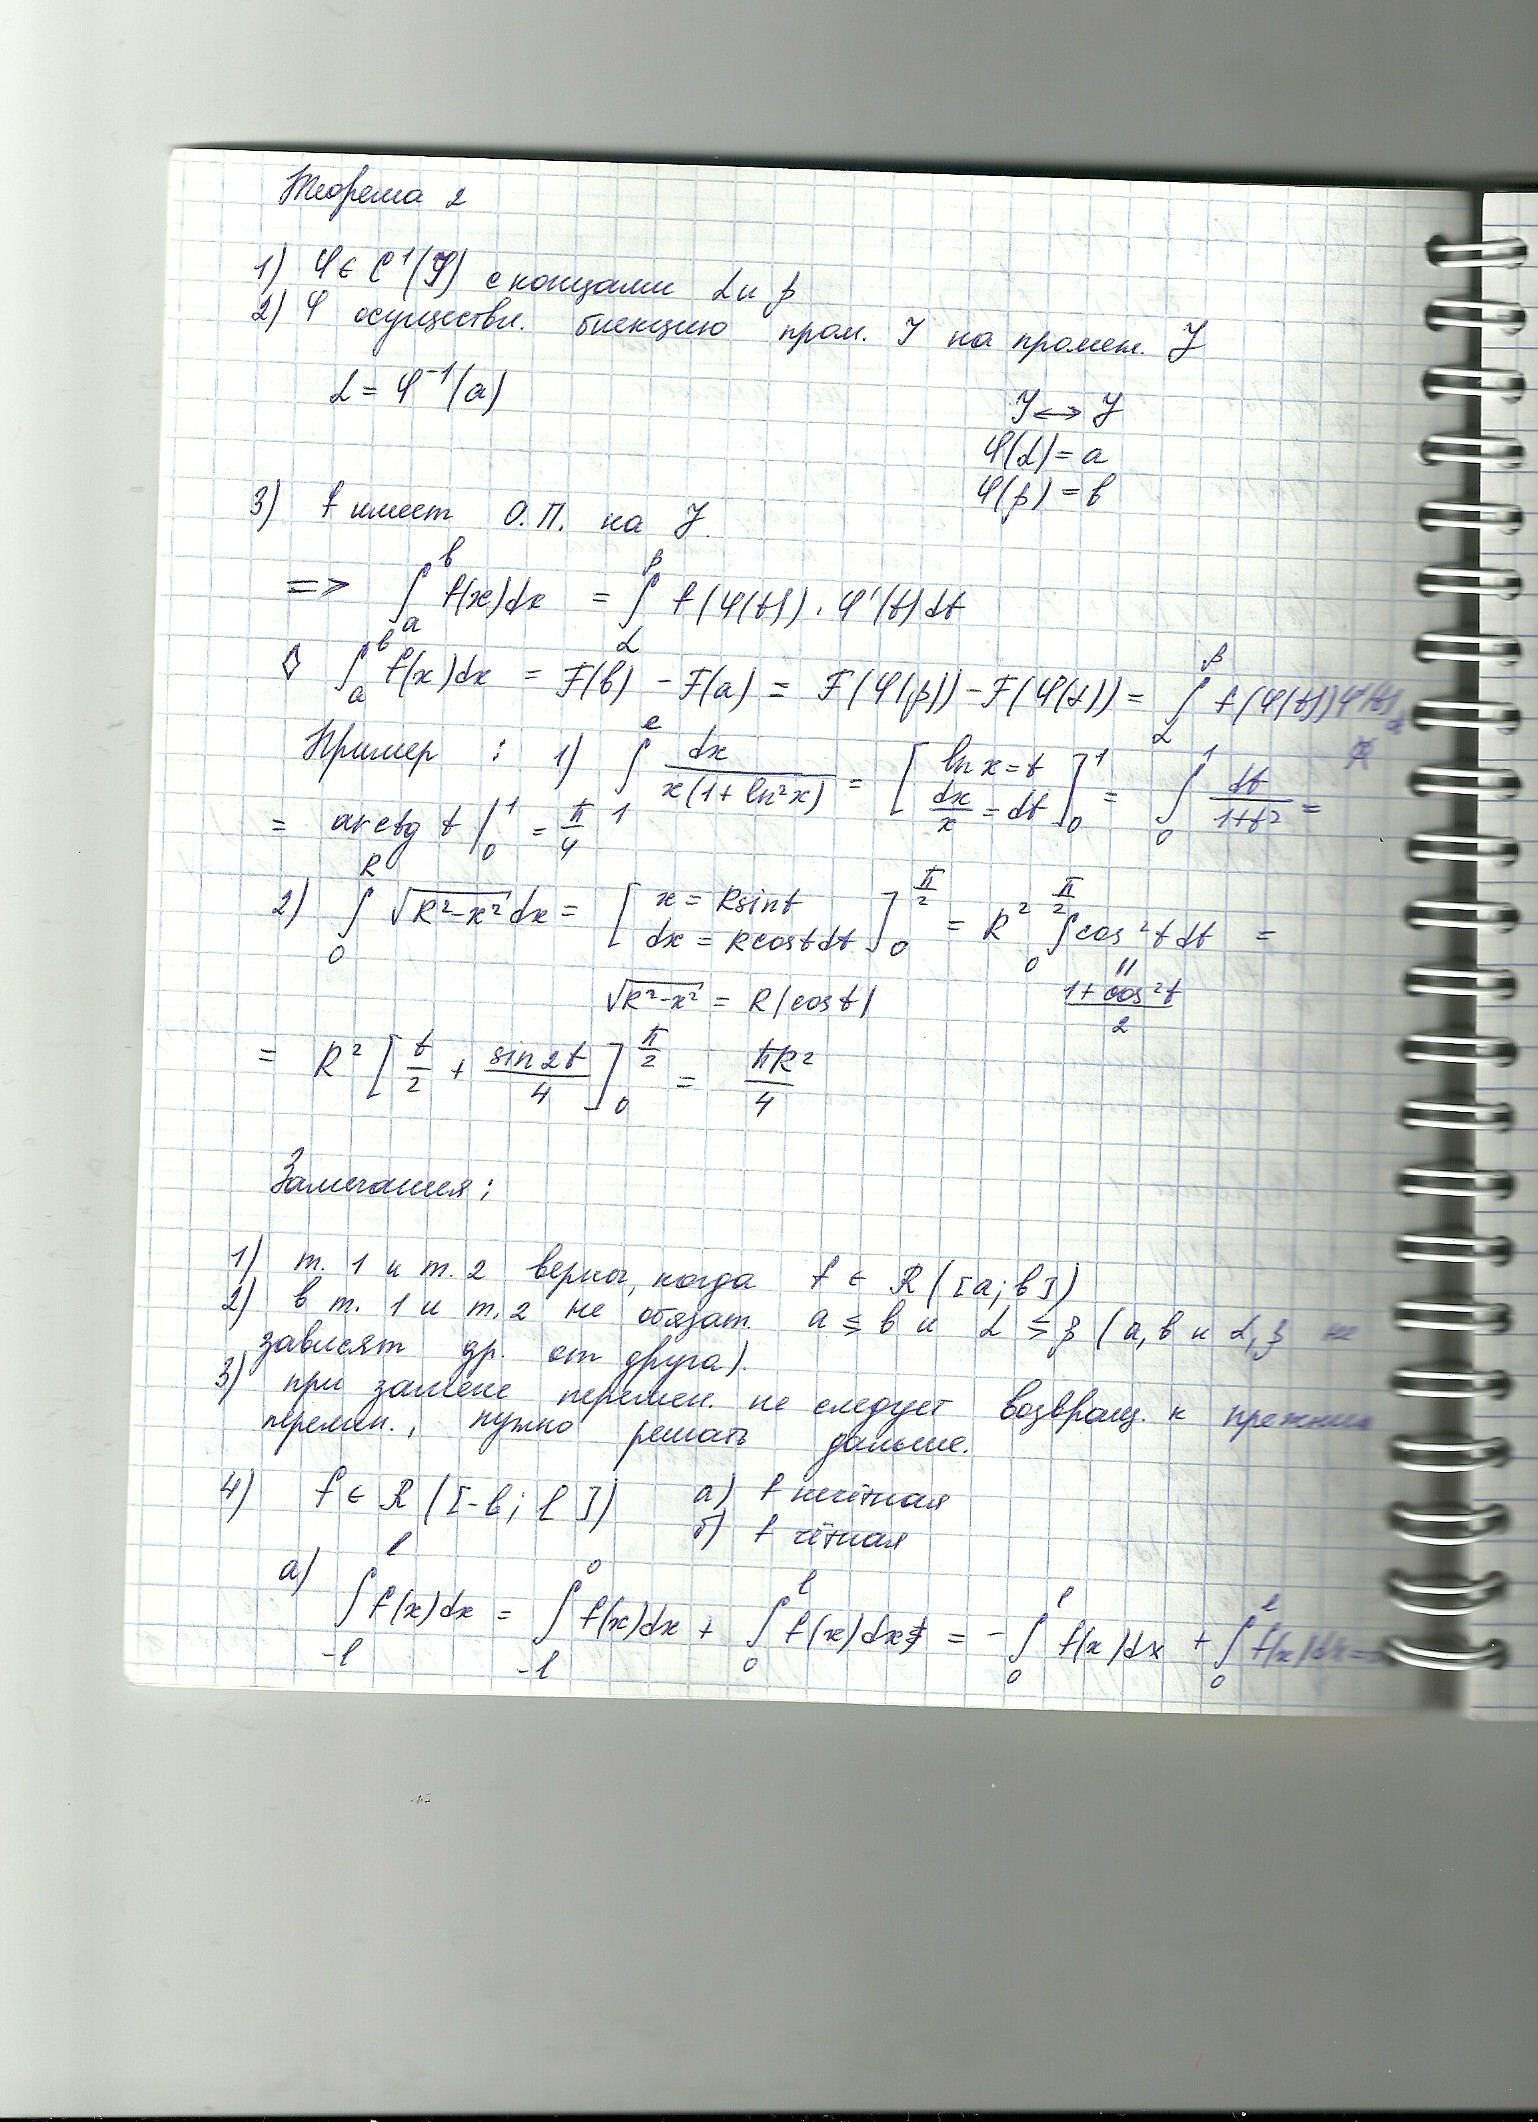 Теорема 2
1) φ ∈ C¹(Y) с концами α и β
2) φ осуществл. биекцию пром. Y на промеж. J
α = φ⁻¹(a)
Y ↔ J
φ(α) = a
φ(β) = b
3) f имеет О.П. на J.
=> ∫_a^b f(x)dx = ∫_α^β f(φ(t))·φ'(t)dt
◊ ∫_a^b f(x)dx = F(b) - F(a) = F(φ(β)) - F(φ(α)) = ∫_α^β f(φ(t))φ'(t)dt
Пример : 1) ∫_1^e dx/(x(1+ln²x)) = [ln x = t; dx/x = dt]_0^1 = ∫_0^1 dt/(1+t²) =
= arctg t |_0^1 = π/4
2) ∫_0^R √(R²-x²) dx = [x = R sin t; dx = R cos t dt]_0^{π/2} = R² ∫_0^{π/2} cos²t dt =
√(R²-x²) = R|cos t|
(1+cos2t)/2
= R² [t/2 + sin 2t/4]_0^{π/2} = πR²/4
Замечания:
1) т. 1 и т. 2 верны, когда f ∈ R([a; b])
2) в т. 1 и т. 2 не обязат. a ≤ b и α ≤ β (a, b и α, β не
зависят др. от друга).
3) при замене перемен. не следует возвращ. к прежним
перемен., нужно решать дальше.
4) f ∈ R([-l; l]) а) f нечётная
б) f чётная
а) ∫_{-l}^l f(x)dx = ∫_{-l}^0 f(x)dx + ∫_0^l f(x)dx = -∫_0^l f(x)dx + ∫_0^l f(x)dx =